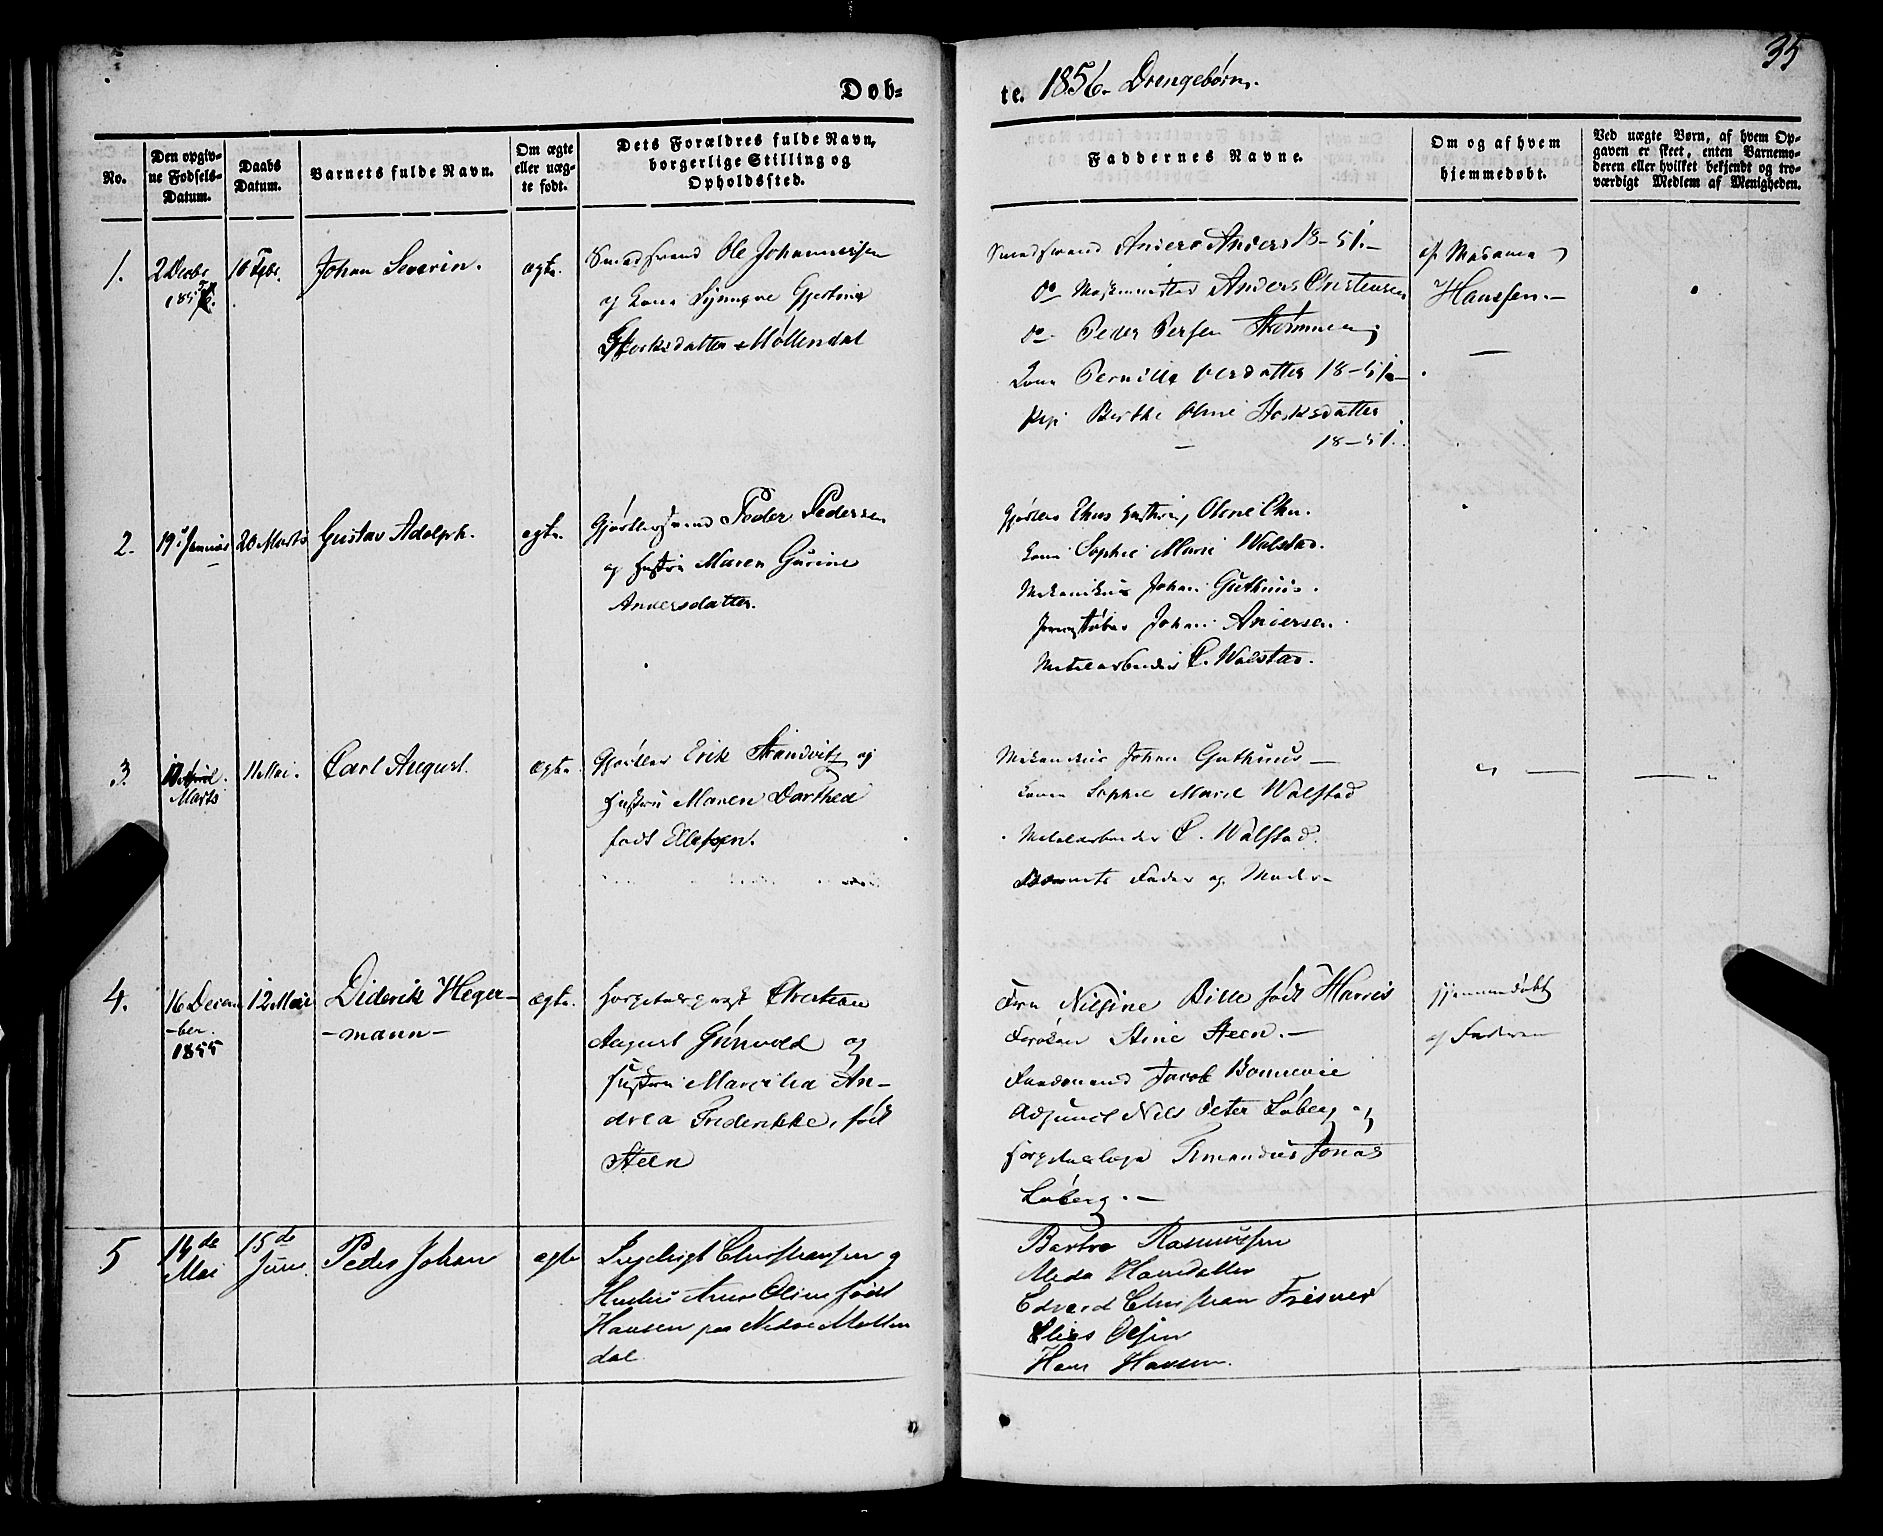 35
Døb-
te. 1856. Drengebørn.
No.
Den opgiv-
ne Fødsels-
Datum.
Daabs
Datum.
Barnets fulde Navn.
Om ægte
eller uæg-
te født.
Dets Forældres fulde Navn,
borgerlige Stilling og
Opholdssted.
Faddernes Navne.
Om og af hvem
hjemmedøbt.
Ved uægte Børn, af hvem Op-
gaven er skeet, enten Barnemo-
deren eller hvilket bekjendt og tro-
værdigt Medlem af Menigheden.
1.
2 Decbr
1855.
10 Febr.
Johan Severin.
ægte.
Smedsvend Ole Johannessen
og Kone
datter Møllendal
Smedsvend Anders Anders 18-51.
do Anders Christensen
do Peder Persen
Kone Pernille Olsdatter 18-51.
Pige Berthe Oline
18-51.
af Madame
Hanssen.
2.
19 Januar
20 Marts
Gustav Adolph.
ægte.
Gjørtlersvend Peder Pedersen
og Hustru Maren Gurine
Andersdatter.
Gjørtler
Kone Sophie Marie Walstad.
Mekanikus Johan Guthuus.
Johan Andersen.
Metalarbeider C. Walstad.
3.
Marts
11 Mai.
Carl August.
ægte.
Gjørtler Erik Strandvitz og
Hustru Maren Dorthea
født Ellefsen.
Mekanikus Johan Guthuus
Konen Sophie Marie Walstad
Metalarbeider C. Walstad.
Barnets Fader og Moder
4.
16 Decem
-ber.
1855
12 Mai
Diderik Heger-
-mann-
ægte.
Hospitalspræst Christian
August Grünvold og
Hustru Marcilia An-
drea Frederikke, født
Steen
Fru Nilsine Bille født Harris
Frøken Stine Steen.
Jacob Bonnevie
Adjunct Nils Peter Løberg og
Hospitalslæge Timandus Jonas
Løberg.
hjemmedøbt
af Faderen
5
14de
Mai
15de
Juni
Peder Johan
ægte
Ingebrigt Christiansen og
Hustru Anne Oline født
Hansen paa Nedre Møllen
dal.
Rasmussen
Hansdatter
Edvard Christian
Elias Olsen
Hans Hansen.